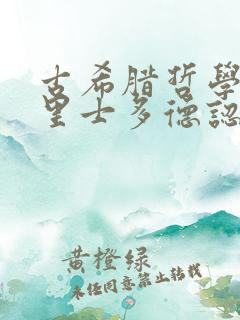 古希腊哲學
里士多德認
黄橙绿
未经同意禁止转载